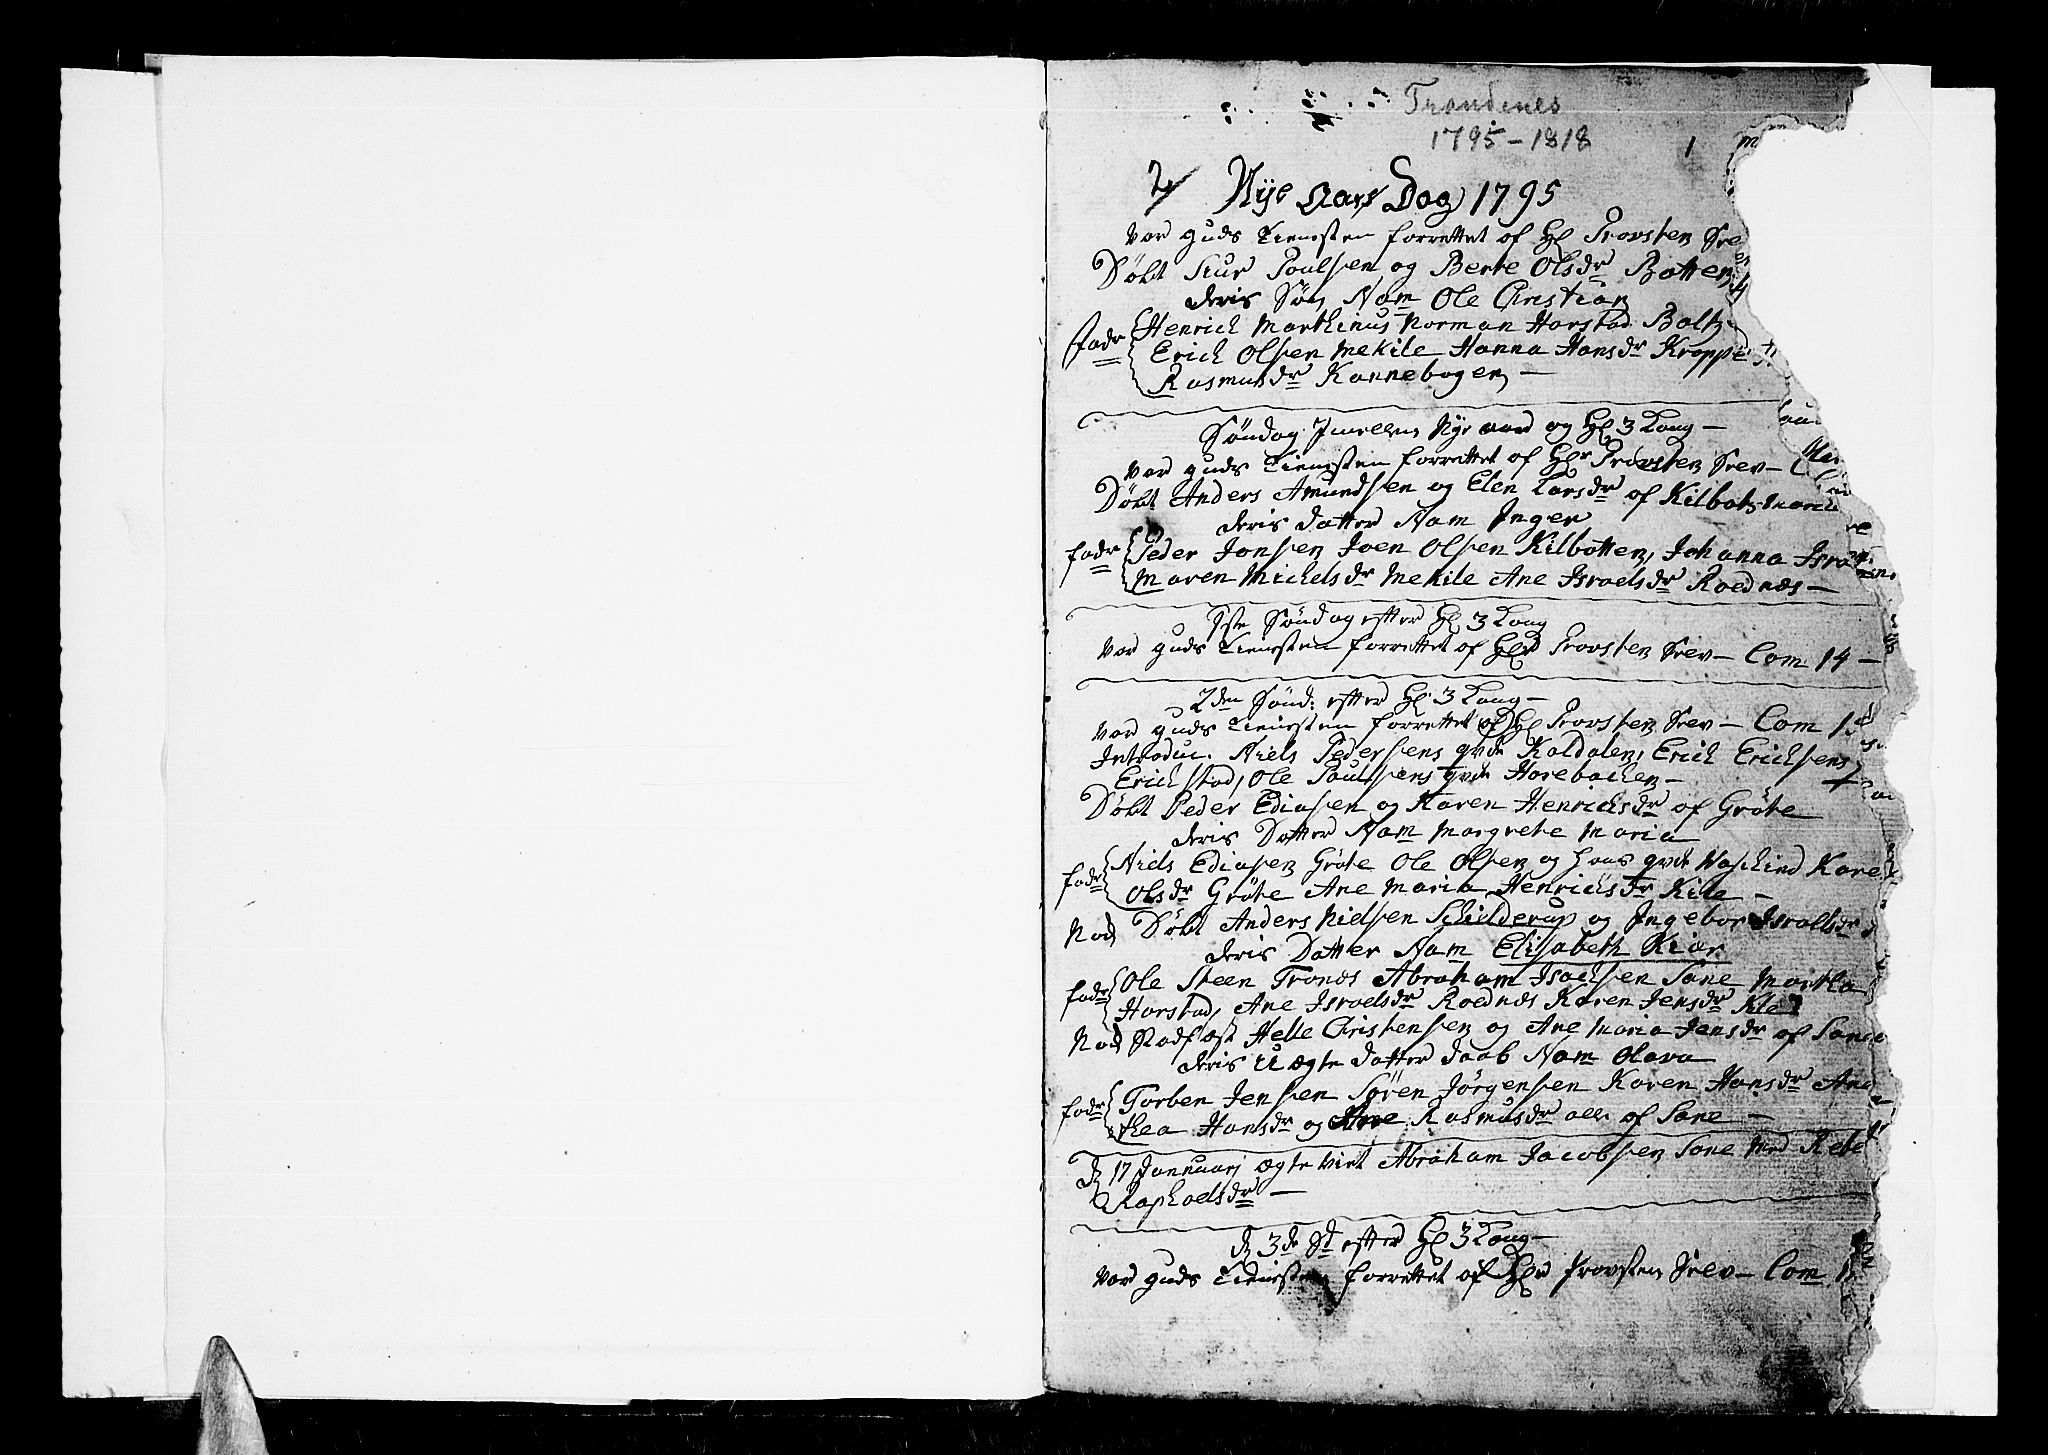 Trondenes
1795-1818
1
2/ Nÿe Aars Dag 1795
Var guds Tienesten forrettet af Hl Provsten Srev
Döbt Siur Poulsen og Berte Olsdr Botten
deris Søn Nam Ole Christian
fadr Henrich Marthinus Norman Harstad Baltz
Erich Olsen Mekile Hanna Hansdr Kroppe
Rasmusdr Kannebogen —
Söndag Imellem Nye aar og Hl 3 Kong —
Var guds Tienesten forrettet af Hlr Provsten Srev —
Döbt Anders Amundsen og Elen Larsdr of Kilbotn
deris datter Nam Inger
fadr Peder Jonsen Joen Olsen Kilbotten, Johanna Isra
Maren Michelsdr Mekile Ane Israelsdr Roednæs —
1ste Söndag efter Hl 3 Kong
Var guds Tienesten forrettet af Hlr Provsten Srev — Com 14 —
2den Sönd: efter Hl 3 Kong —
Var guds Tienesten forrettet af Hl Provsten Srev — Com 1
Introduc. Niels Pedersens qvde Kaldalen, Erich Erichsens
Erichstad, Ole Paulsens qvde Horebachen —
Döbt Peder Ediasen og Karen Henrichsdr of Gröte
deris Datter Nam Margrete Maria
fadr Niels Ediasen Gröte Ole Olsen og hans qvde Kare
Olsdr Gröte Ane Maria Henrichsdr Kile —
Nod Döbt Anders Nielsen Schielderup og Ingebor Israelsdr
deris Datter Nam Elisabeth Kiær
fadr Ole Steen Trones Abraham Isachsen Sane Martha
Harstad, Ane Israelsdr Roednæs Karen Jensdr Kile
Nod Stadfæst Helle Christensen og Ane Maria Jensdr of Sane
deris U ægte datter daab Nam Olava
fadr Torben Jensen Sören Jörgensen Karen Hansdr
thea Hansdr og Ane Rasmusdr alle of Sane —
d 17 Januarj ægte viet Abraham Jacobsen Sane Med Rebe
Raphaelsdr —
d 3de Sd efter Hl 3 Kong —
Var guds Tienesten forrettet af Hlr Provsten Srev — Com